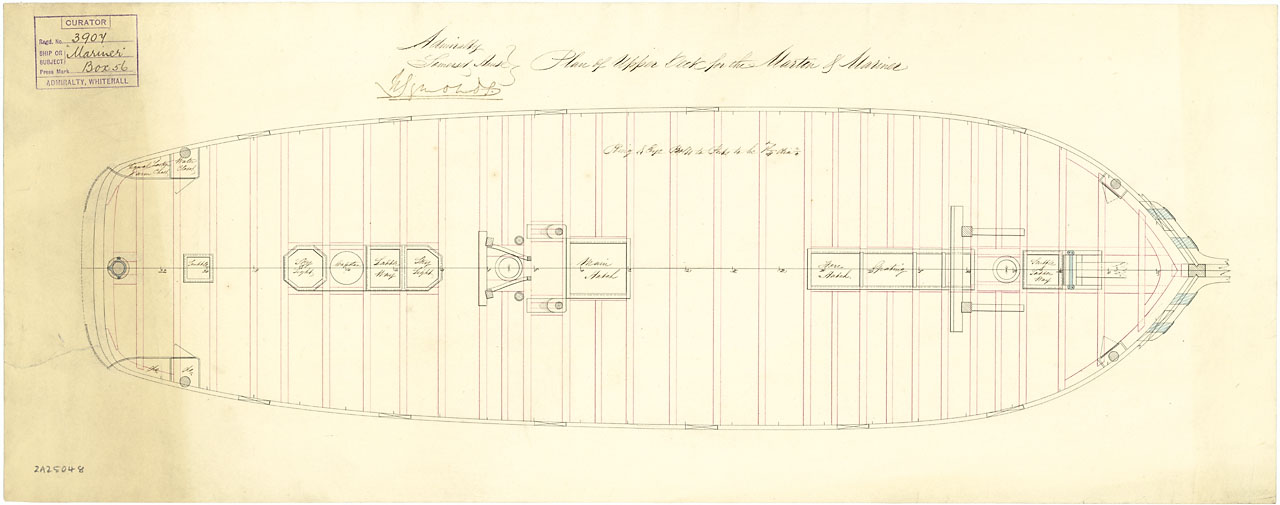 CURATOR
Regd. No. 3907
SHIP OR SUBJECT "Mariner"
Press Mark Box 56
ADMIRALTY, WHITEHALL
Admiralty
Somerset House
Plan of Upper Deck for the Martin & Mariner
W Symonds
Ring & Eye Bolts
Water Closet
Sky Light
Capstan
Ladder Way
Sky Light
Main Hatch
Fore Hatch
Grating
Ladder Way
Do
Do
2A25048